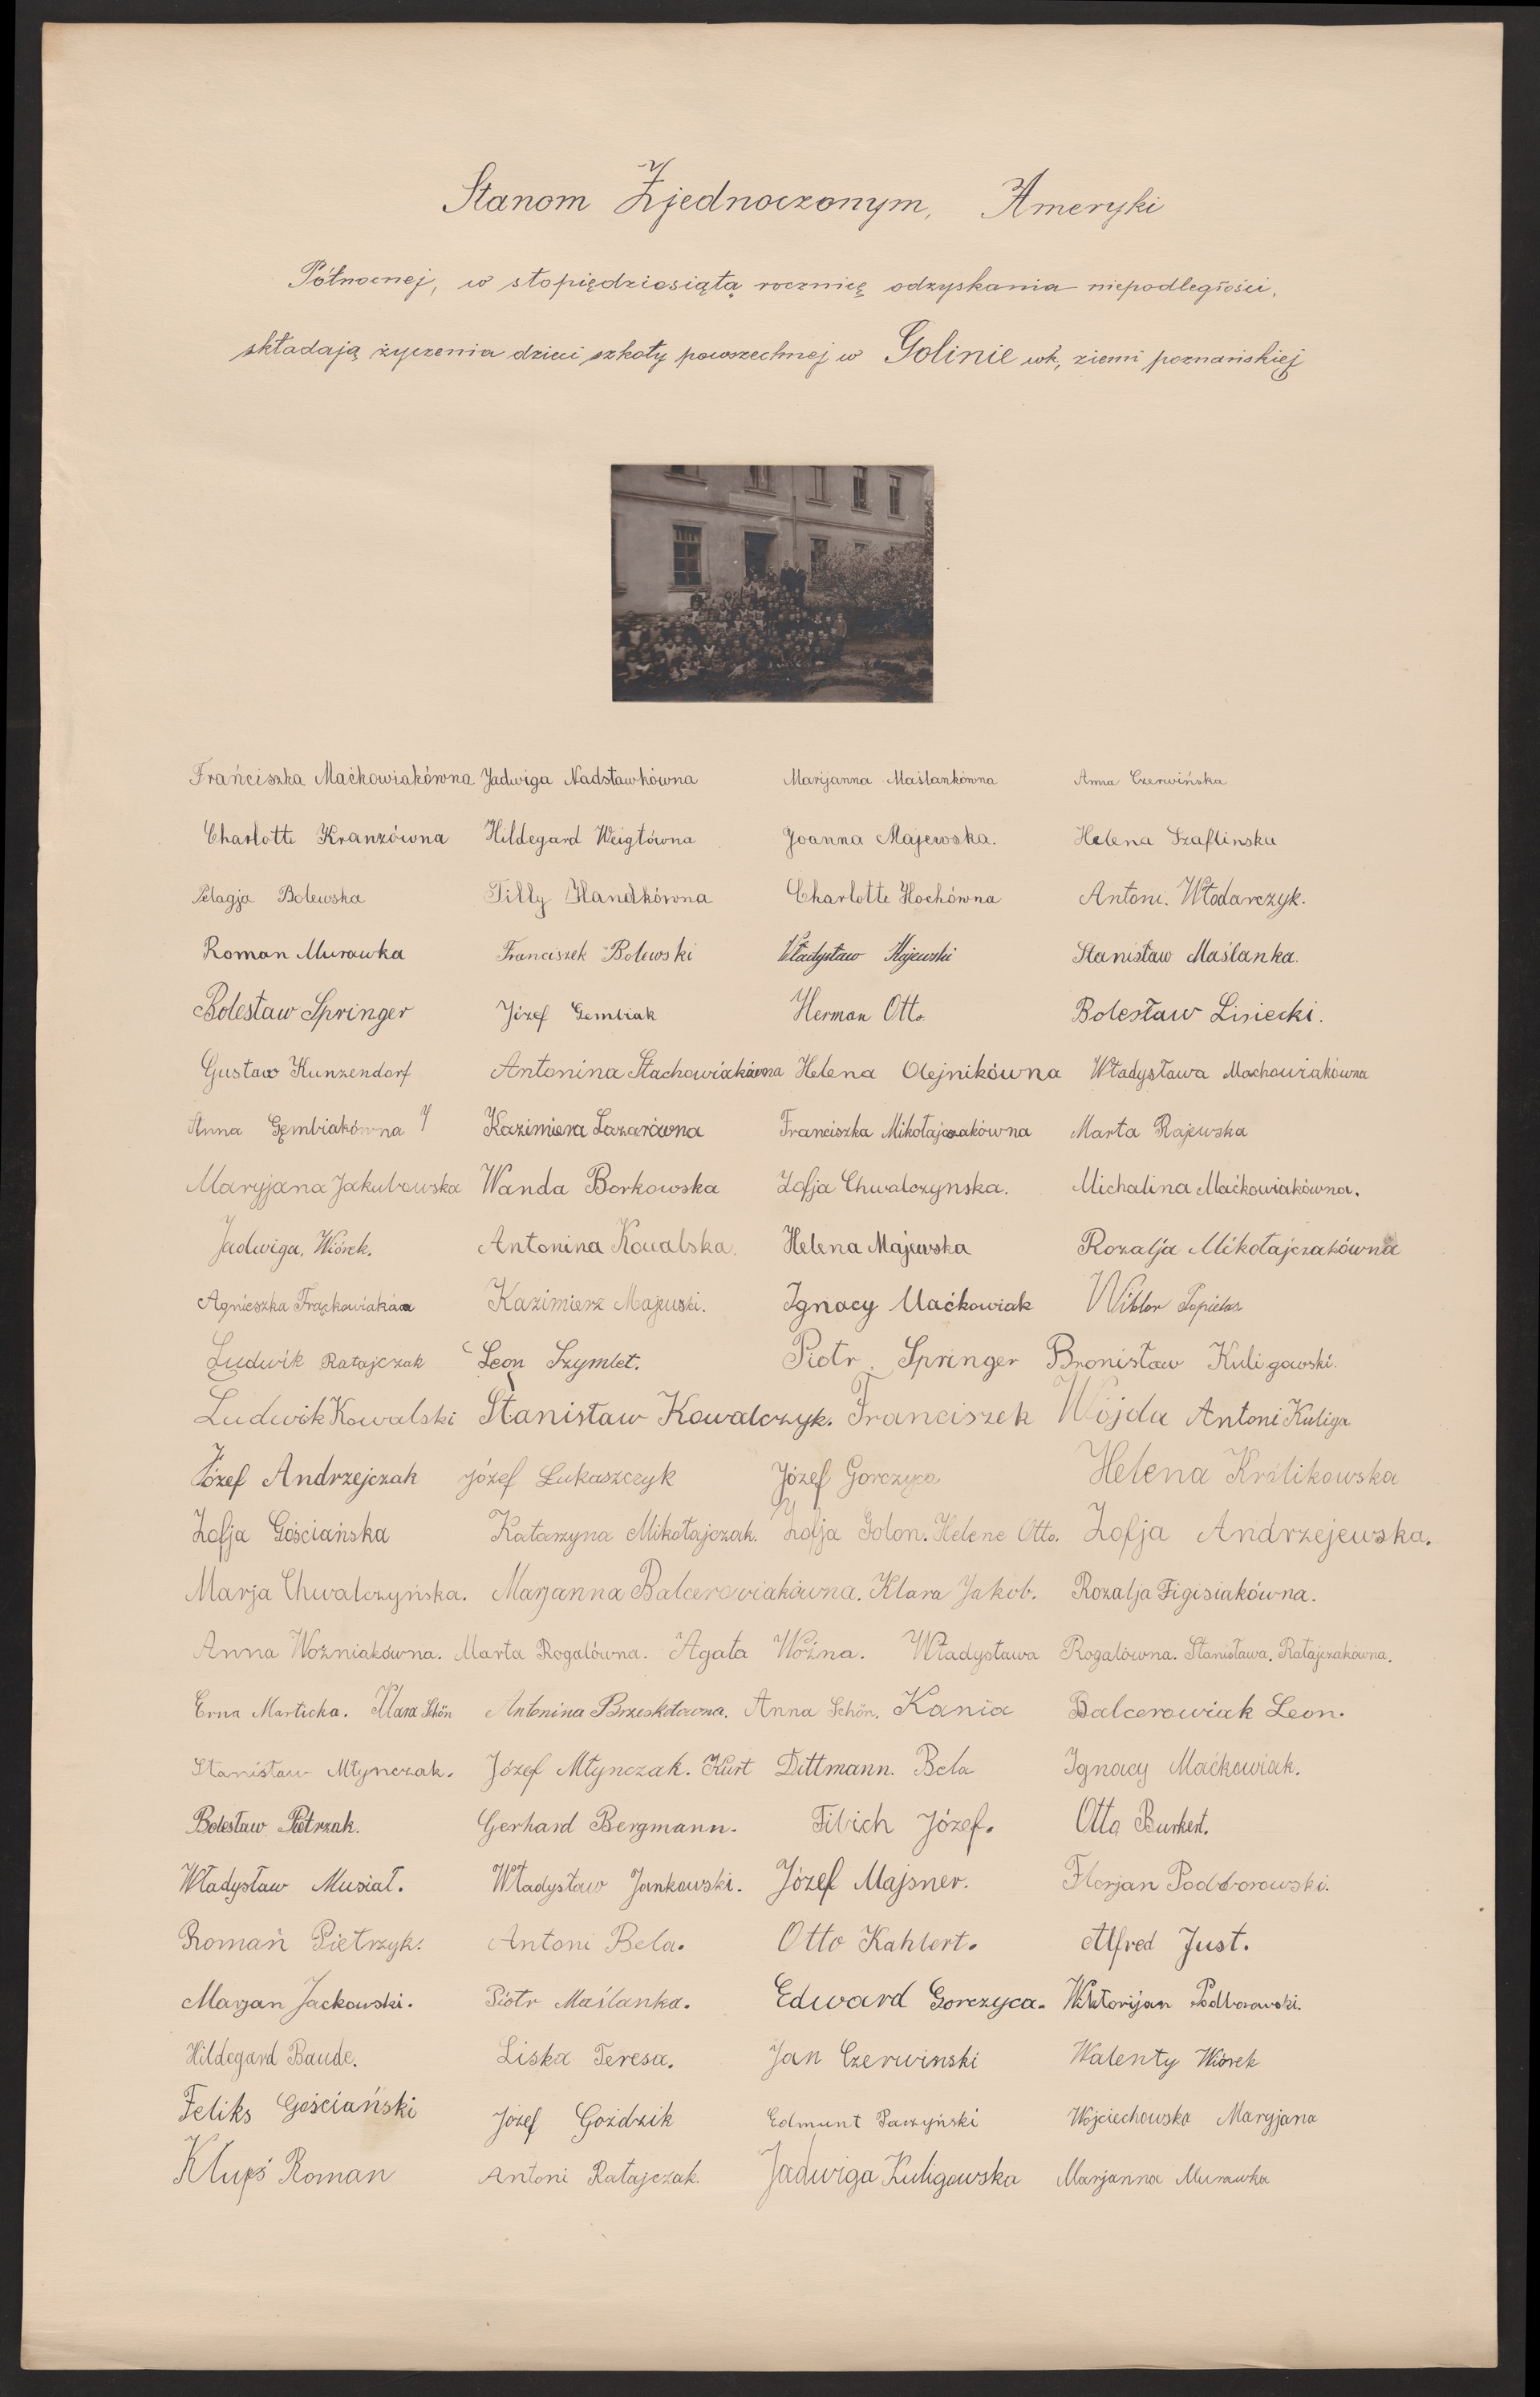 Stanom Zjednoczonym, Ameryki
Północnej, w stopiędziesiątą rocznicę odzyskania niepodległości,
składają życzenia dzieci szkoły powszechnej w Golinie wk, ziemi poznańskiej
Frańciszka Maćkowiakówna Jadwiga Nadstawkówna Marijanna Maślankówna Anna Czerwińska
Charlotte Kranzówna Hildegard Weigtówna Joanna Majewska. Helena Szaflinska
Pelagja Bolewska Tilly Handkówna Charlotte Hochówna Antoni. Włodarczyk.
Roman Murawka Franciszek Bolewski Władysław Majewski Stanisław Maślanka.
Bolesław Springer Józef Gembiak Herman Otto Bolesław Lisiecki.
Gustaw Kunzendorf Antonina Stachowiakówna Helena Olejnikówna Władysława Machowiakówna
Anna Gembiakówna Kazimiera Lazarówna Franciszka Mikołajczakówna Marta Rajewska
Maryjana Jakubowska Wanda Borkowska Zofja Chwalczynska. Michalina Maćkowiakówna.
Jadwiga, Wiórek. Antonina Kowalska. Helena Majewska Rozalja Mikołajczakówna
Agnieszka Kazimierz Majewski. Ignacy Maćkowiak Wiktor
Ludwik Ratajczak Leon Szymlet. Piotr. Springer Bronisław Kuligowski.
Ludwik Kowalski Stanisław Kowalczyk. Franciszek Wojda Antoni Kuliga
Józef Andrzejczak Józef Łukaszczyk Józef Gorczyca Helena Królikowska
Zofja Gościańska Katarzyna Mikołajczak. Zofja Golon. Helene Otto. Zofja Andrzejewska.
Marja Chwalczyńska. Marjanna Balcerowiakówna. Klara Jakob. Rozalja Figisiakówna.
Anna Woźniakówna. Marta Rogalówna. Agata Woźna. Władysława Rogalówna. Stanisława. Ratajczakówna.
Erna Marticka. Klara Schön Antonina Brzeskotowna. Anna Schön. Kania Balcerowiak Leon.
Stanisław Młynczak. Józef Młynczak. Kurt Dittmann. Bela Ignacy Maćkowiak.
Bolesław Pietrzak. Gerhard Bergmann. Filich Józef. Otto Burkert.
Władysław Musiał. Władysław Jankowski. Józef Majsner. Florjan Podborowski.
Romań Pietrzyk. Antoni Bela. Otto Kahlert. Alfred Just.
Marjan Jackowski. Piotr Maślanka. Edward Gorczyca. Wiktorijan Podborowski.
Hildegard Baude. Liska Teresa. Jan Czerwinski Walenty Wiórek
Feliks Gościański Józef Goździk Edmunt Paczyński Wojciechowska Maryjana
Klupś Roman Antoni Ratajczak. Jadwiga Kuligowska Marjanna Murawka